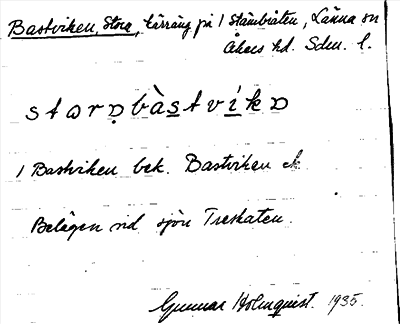 Bastviken, Stora, kärräng på 1 Stämbiäten, Länna sn
Åkers hd. Sdm. l.
starDbàstvíkD
1 Bastviken bek. Bastviken
Belägen vid sjön Treskaten.
Gunnar Holmquist. 1935.